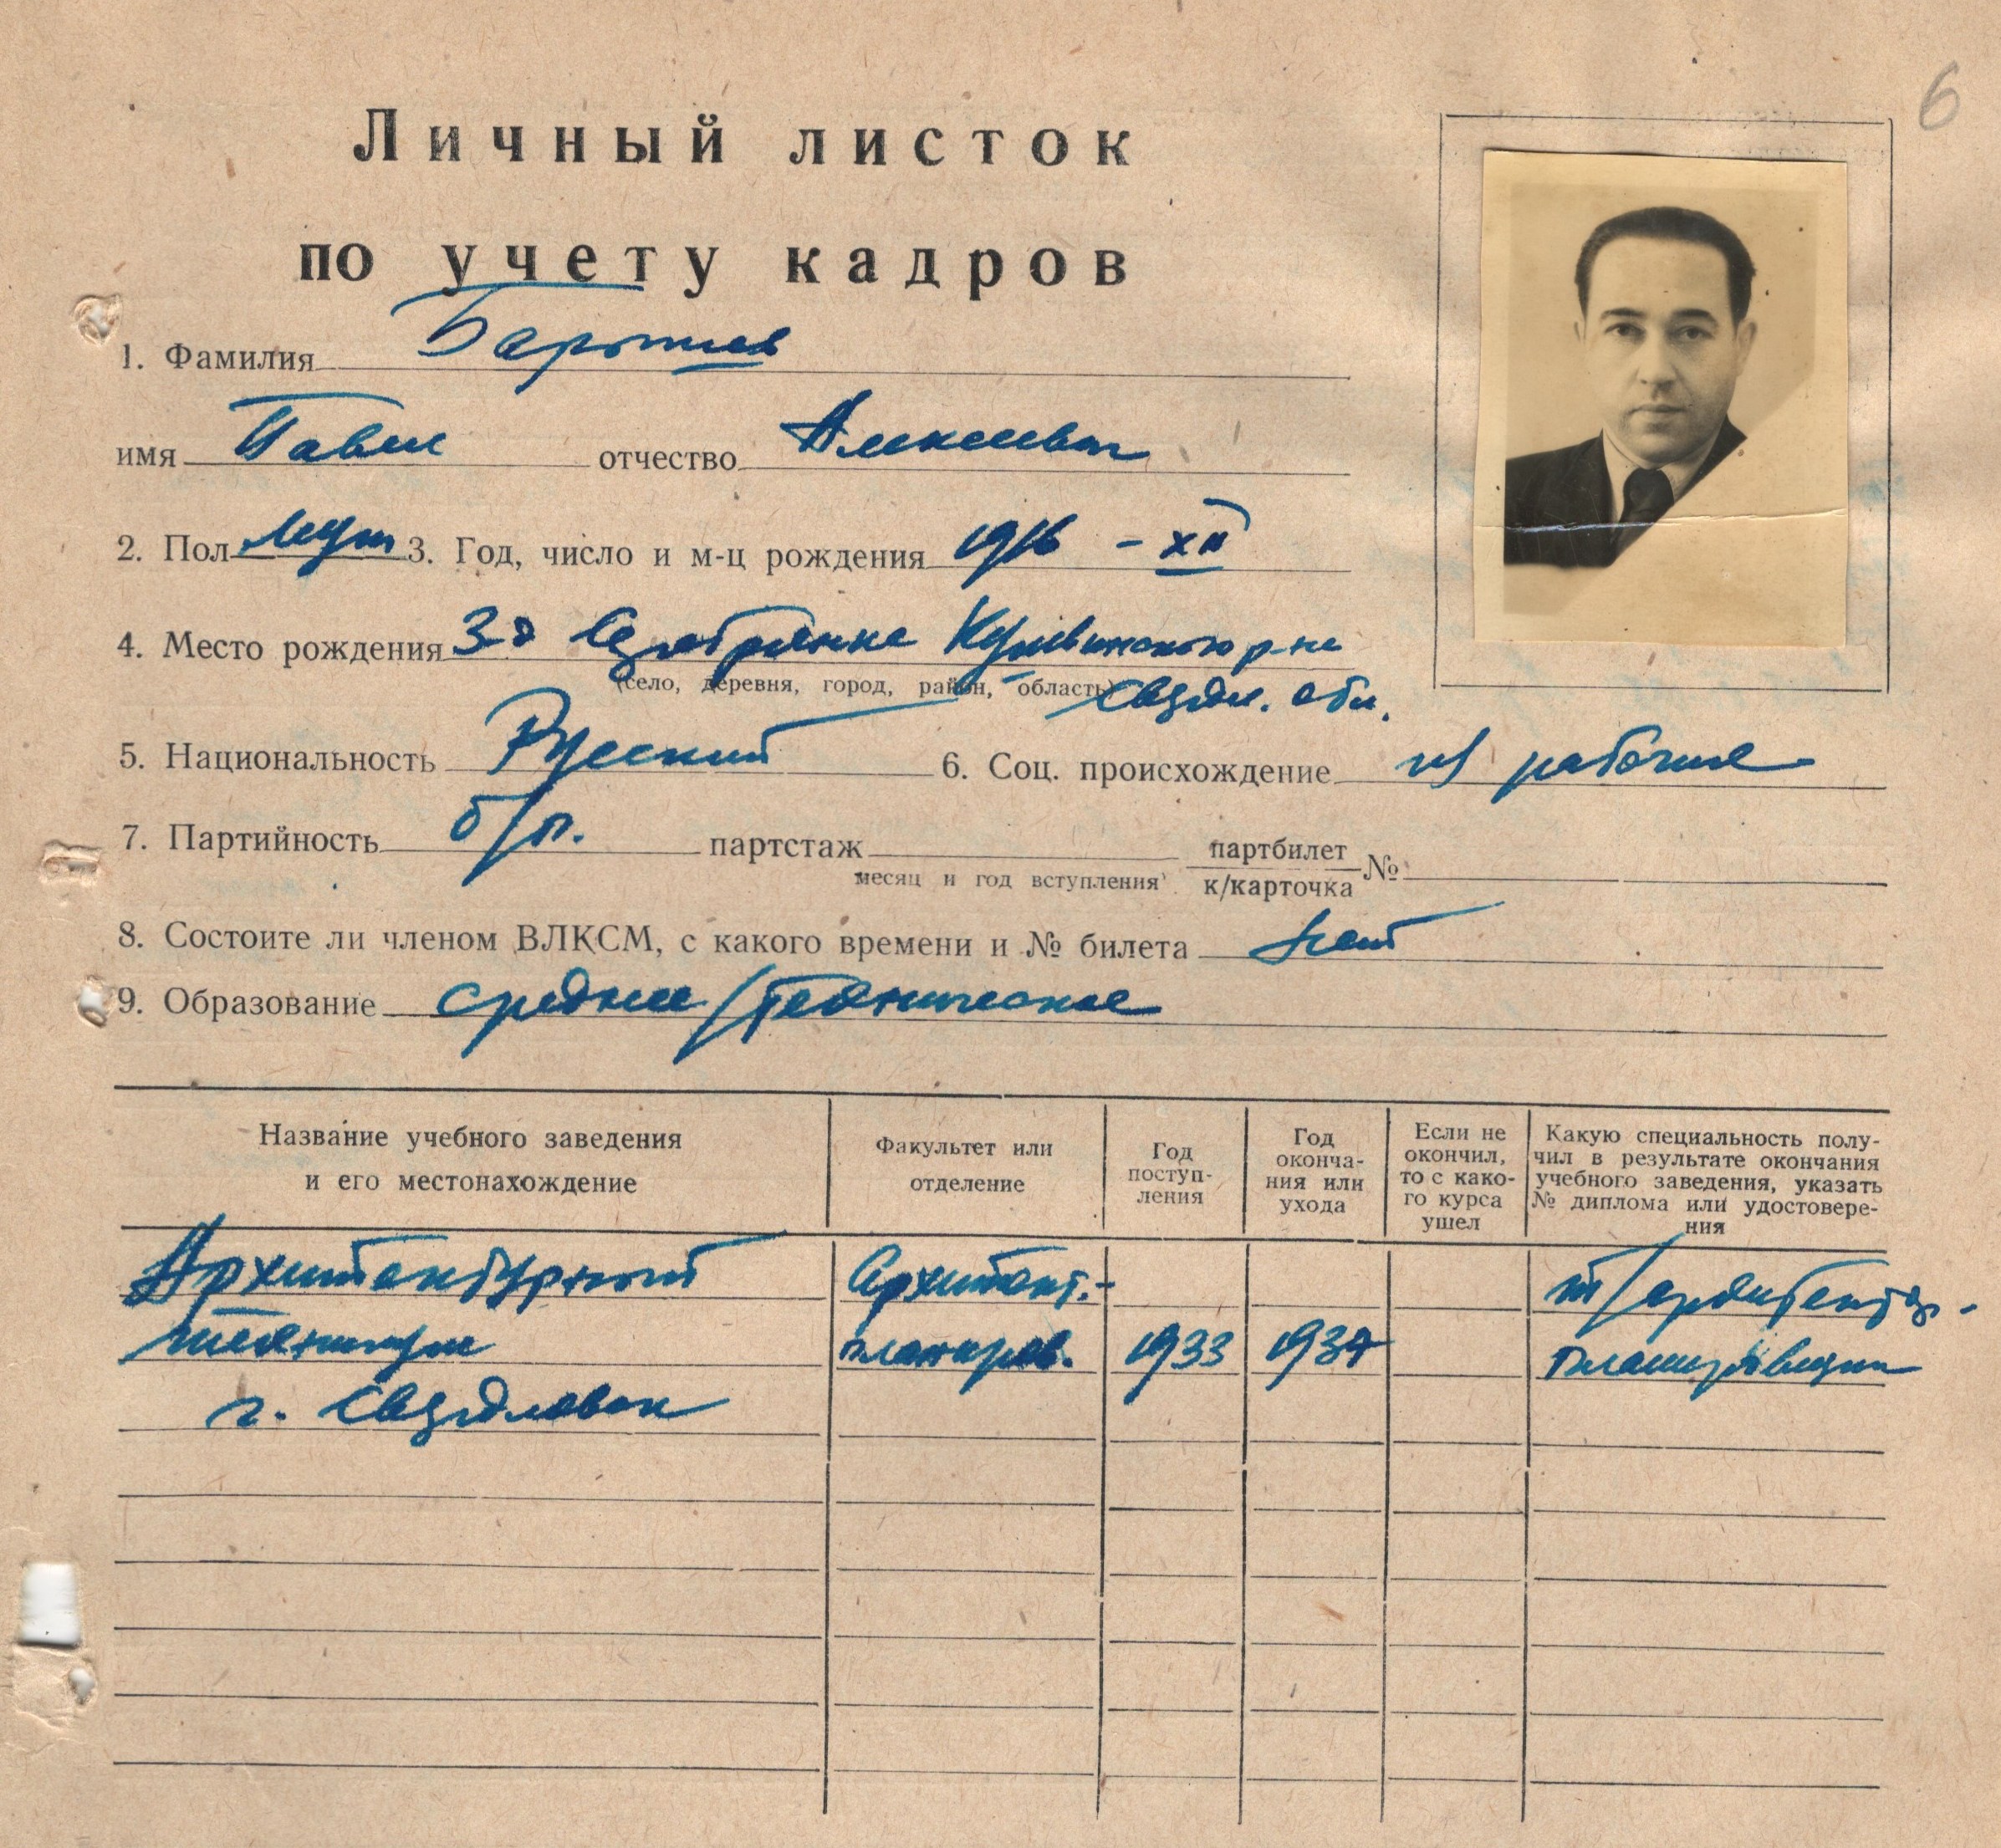 6
Личный листок
по учету кадров
1. Фамилия
имя Павел отчество Алексеевич
2. Пол муж 3. Год, число и м-ц рождения 1916 - XII
4. Место рождения З-д Серебрянка Кушвинского р-на
(село, деревня, город, район, область)
Свердл. обл.
5. Национальность Русский 6. Соц. происхождение из рабочих
7. Партийность б/п. партстаж партбилет
к/карточка №
месяц и год вступления
8. Состоите ли членом ВЛКСМ, с какого времени и № билета нет
9. Образование среднее/техническое
Название учебного заведения и его местонахождение
Факультет или отделение
Год поступ-ления
Год оконча-ния или ухода
Если не окончил, то с како-го курса ушел
Какую специальность полу-чил в результате окончания учебного заведения, указать № диплома или удостовере-ния
Архитектурный Архитект.- т/архитектор-
техникум планиров. 1933 1937 планировщик
г. Свердловск